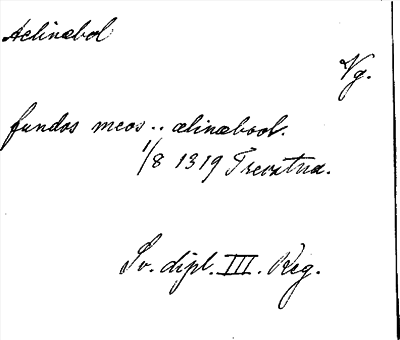 Aelinæbol
Vg.
fundos meos .. ælinæboot.
1/8 1319 Trevatna.
Sv. dipl. III. Reg.